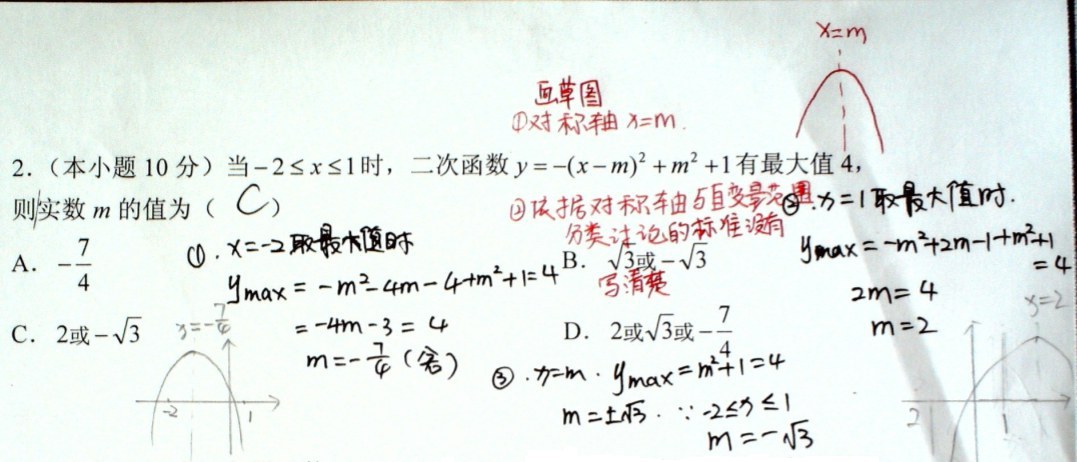 x=m
画草图
①对称轴 x=m.
2.（本小题 10 分）当 −2≤x≤1 时，二次函数 y=−(x−m)²+m²+1 有最大值 4，
则实数 m 的值为（ C ）
②依据对称轴与自变量范围
分类讨论的标准没有
写清楚
A. −7/4
B. √3或−√3
C. 2或−√3
D. 2或√3或−7/4
①. x=−2取最大值时
ymax = −m²−4m−4+m²+1=4
=−4m−3=4
m=−7/4（舍）
②. x=1取最大值时.
ymax=−m²+2m−1+m²+1
=4
2m=4
m=2
③. x=m. ymax=m²+1=4
m=±√3. ∵ −2≤x≤1
m=−√3
x=−7/4
−2
1
x=2
2
1